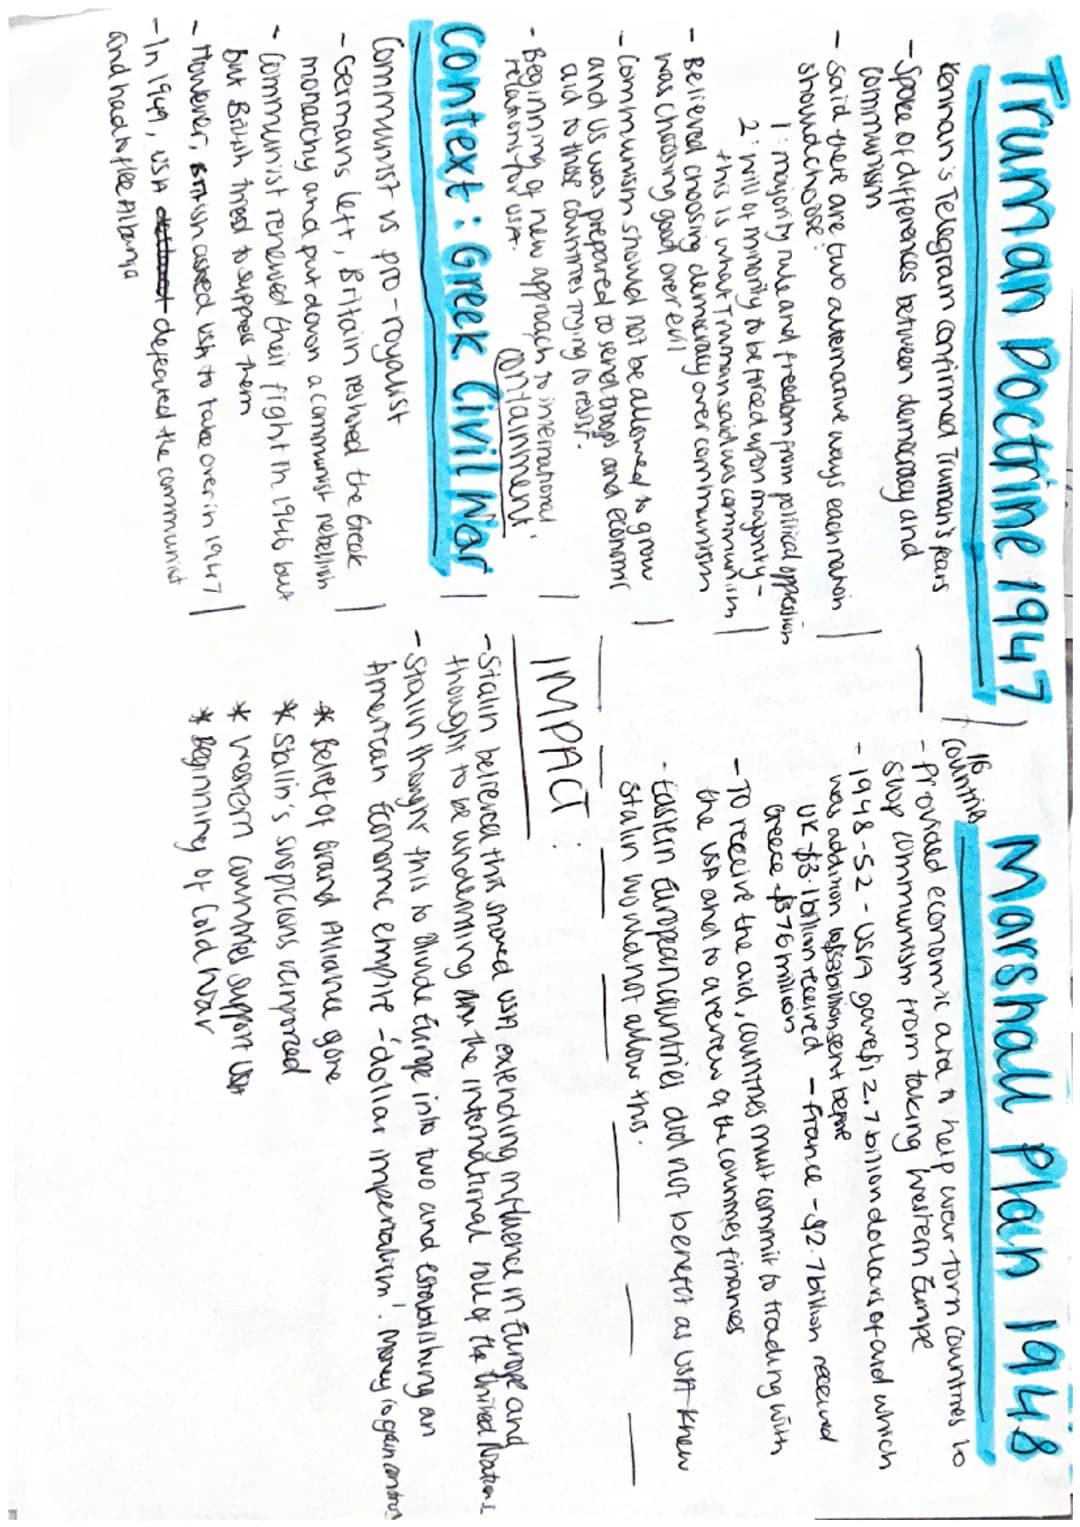 Truman Doctrine 1947
Kennan's Telegram confirmed Truman's fears
- Spoke of differences between democracy and
communism
- Said there are two alternative ways each nation
should choose:
1: majority rule and freedom from political oppression
2: will of minority to be forced upon majority -
this is what Truman said was communism
- Believed choosing democracy over communism
was choosing good over evil
- Communism should not be allowed to grow
and US was prepared to send troops and economic
aid to those countries trying to resist.
- Beginning of new approach to international
relations for USA.
'containment'
Context: Greek Civil War
Communist vs pro-royalist
- Germans left, Britain restored the Greek
monarchy and put down a communist rebellion
- Communist renewed their fight in 1946 but
but British tried to suppress them
- However, British asked USA to take over in 1947
- In 1949, USA defeated the communist
and had to flee Albania
Marshall Plan 1948
16
countries
- Provided economic aid to help war-torn countries to
stop communism from taking Western Europe
- 1948-52 - USA gave $12.7 billion dollars of aid which
was addition to $13 billion sent before
UK - $3.1 billion received - France - $2.7 billion received
Greece $376 million
- To receive the aid, countries must commit to trading with
the USA and to a review of the countries finances
- Eastern European countries did not benefit as USA knew
Stalin would not allow this.
IMPACT:
- Stalin believed this showed USA extending influence in Europe and
thought to be undermining the international role of the United Nations
- Stalin thought this to divide Europe into two and establishing an
American Economic empire - 'dollar imperialism'. Money to gain control
* Belief of Grand Alliance gone
* Stallin's suspicions
* Western countries support USA
* Beginning of Cold War